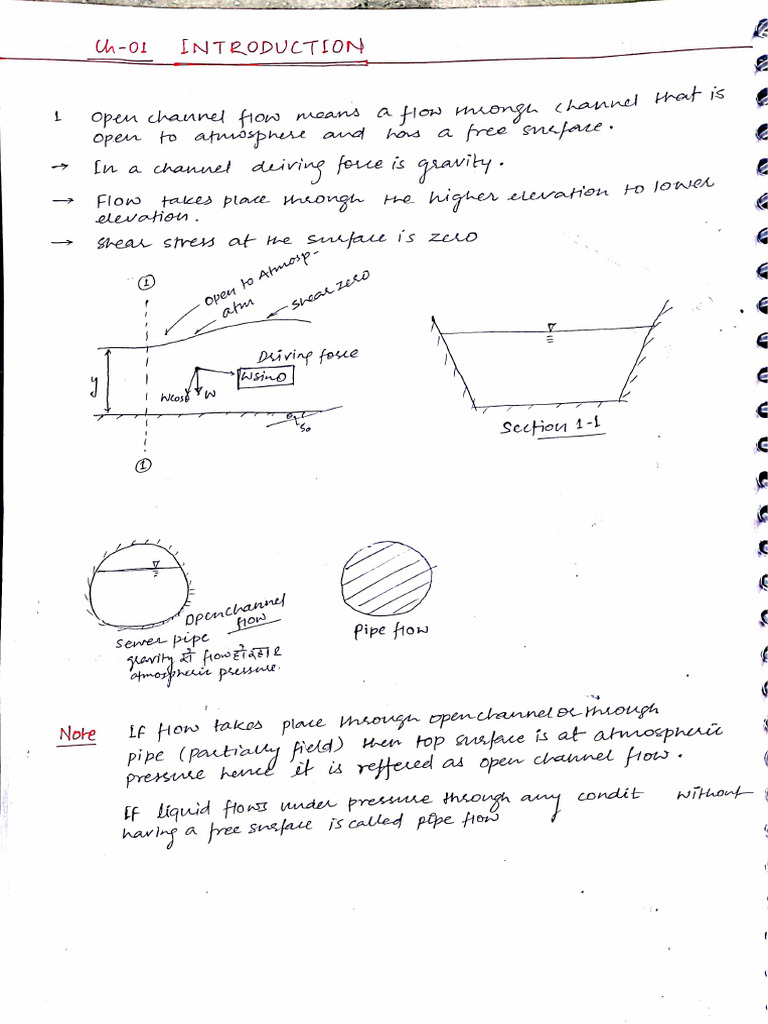 Ch-01 INTRODUCTION
1 Open channel flow means a flow through channel that is
open to atmosphere and has a free surface.
→ In a channel driving force is gravity.
→ Flow takes place through the higher elevation to lower
elevation.
→ Shear stress at the surface is zero
①
Open to Atmosp-
atm
Shear zero
Driving force
y
Wcosθ
W
Wsinθ
θ
So
①
Section 1-1
Open channel
flow
Sewer pipe
gravity से flow हो रहा है
atmospheric pressure.
Pipe flow
Note If flow takes place through open channel or through
pipe (partially field) then top surface is at atmospheric
pressure hence it is reffered as open channel flow.
If liquid flows under pressure through any condit without
having a free surface is called pipe flow